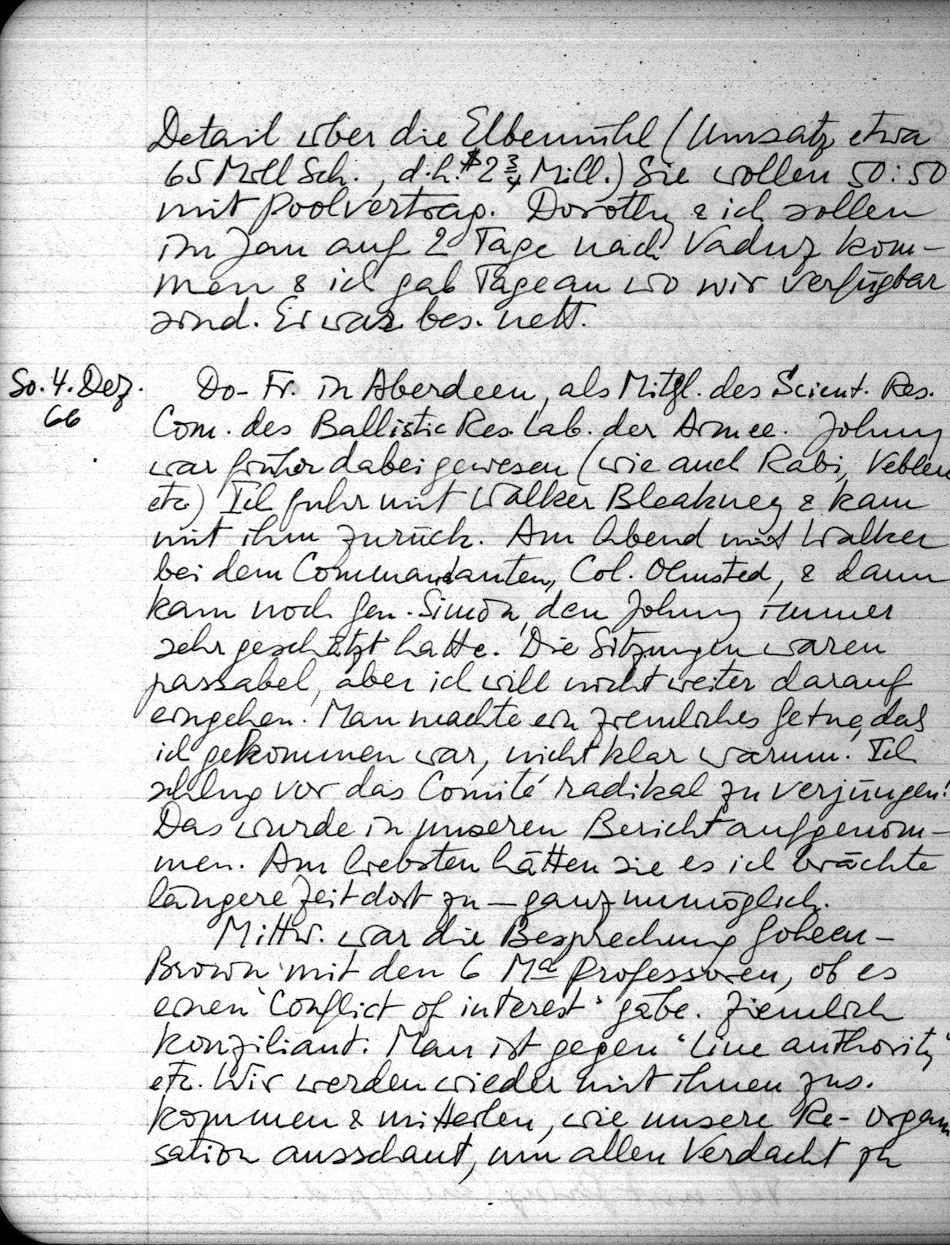 Detail über die Elbemühl (Umsatz etwa
65 Mill Sch., d.h. $2 3/4 Mill.) Sie wollen 50:50
mit Poolvertrag. Dorothy & ich sollen
im Jan auf 2 Tage nach Vaduz kom-
men & ich gab Tage an wo wir verfügbar
sind. Er war bes. nett.
So. 4. Dez.
66
Do-Fr. in Aberdeen, als Mitgl. des Scient. Res.
Com. des Ballistic Res. Lab. der Armee. Johny
war früher dabei gewesen (wie auch Rabi, Veblen
etc) Ich fuhr mit Walker Bleakney & kam
mit ihm zurück. Am Abend mit Walker
bei dem Commandanten, Col. Olmsted, & dann
kam noch Gen. Simon, den Johny immer
sehr geschätzt hatte. Die Sitzungen waren
passabel, aber ich will nicht weiter darauf
eingehen. Man machte ein ziemliches Getue, daß
ich gekommen war, nicht klar warum! Ich
schlug vor das Comité radikal zu verjüngen!
Das wurde in unseren Bericht aufgenom-
men. Am liebsten hätten sie es ich brächte
längere Zeit dort zu – ganz unmöglich.
Mittw. war die Besprechung Goheen-
Brown mit den 6 Ma Professoren, ob es
einen "Conflict of interest" gäbe. Ziemlich
konziliant. Man ist gegen "line authority"
etc. Wir werden wieder mit ihnen zus.
kommen & mitteilen, wie unsere Re-organi
sation ausschaut, um allen Verdacht zu